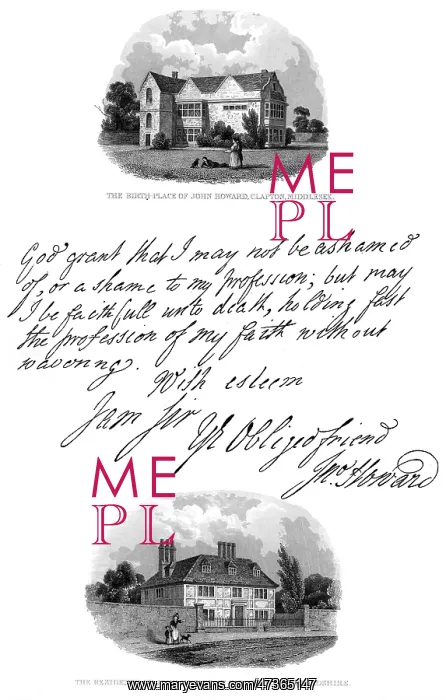 THE BIRTH-PLACE OF JOHN HOWARD, CLAPTON, MIDDLESEX.
ME
PL
God grant that I may not be ashamed
of, or a shame to my profession; but may
I be faithfull unto death, holding fast
the profession of my faith without
wavering.
With esteem
I am Sir
Yr Obliged friend
Jno Howard
ME
PL
THE RESIDEN
www.maryevans.com/47365147